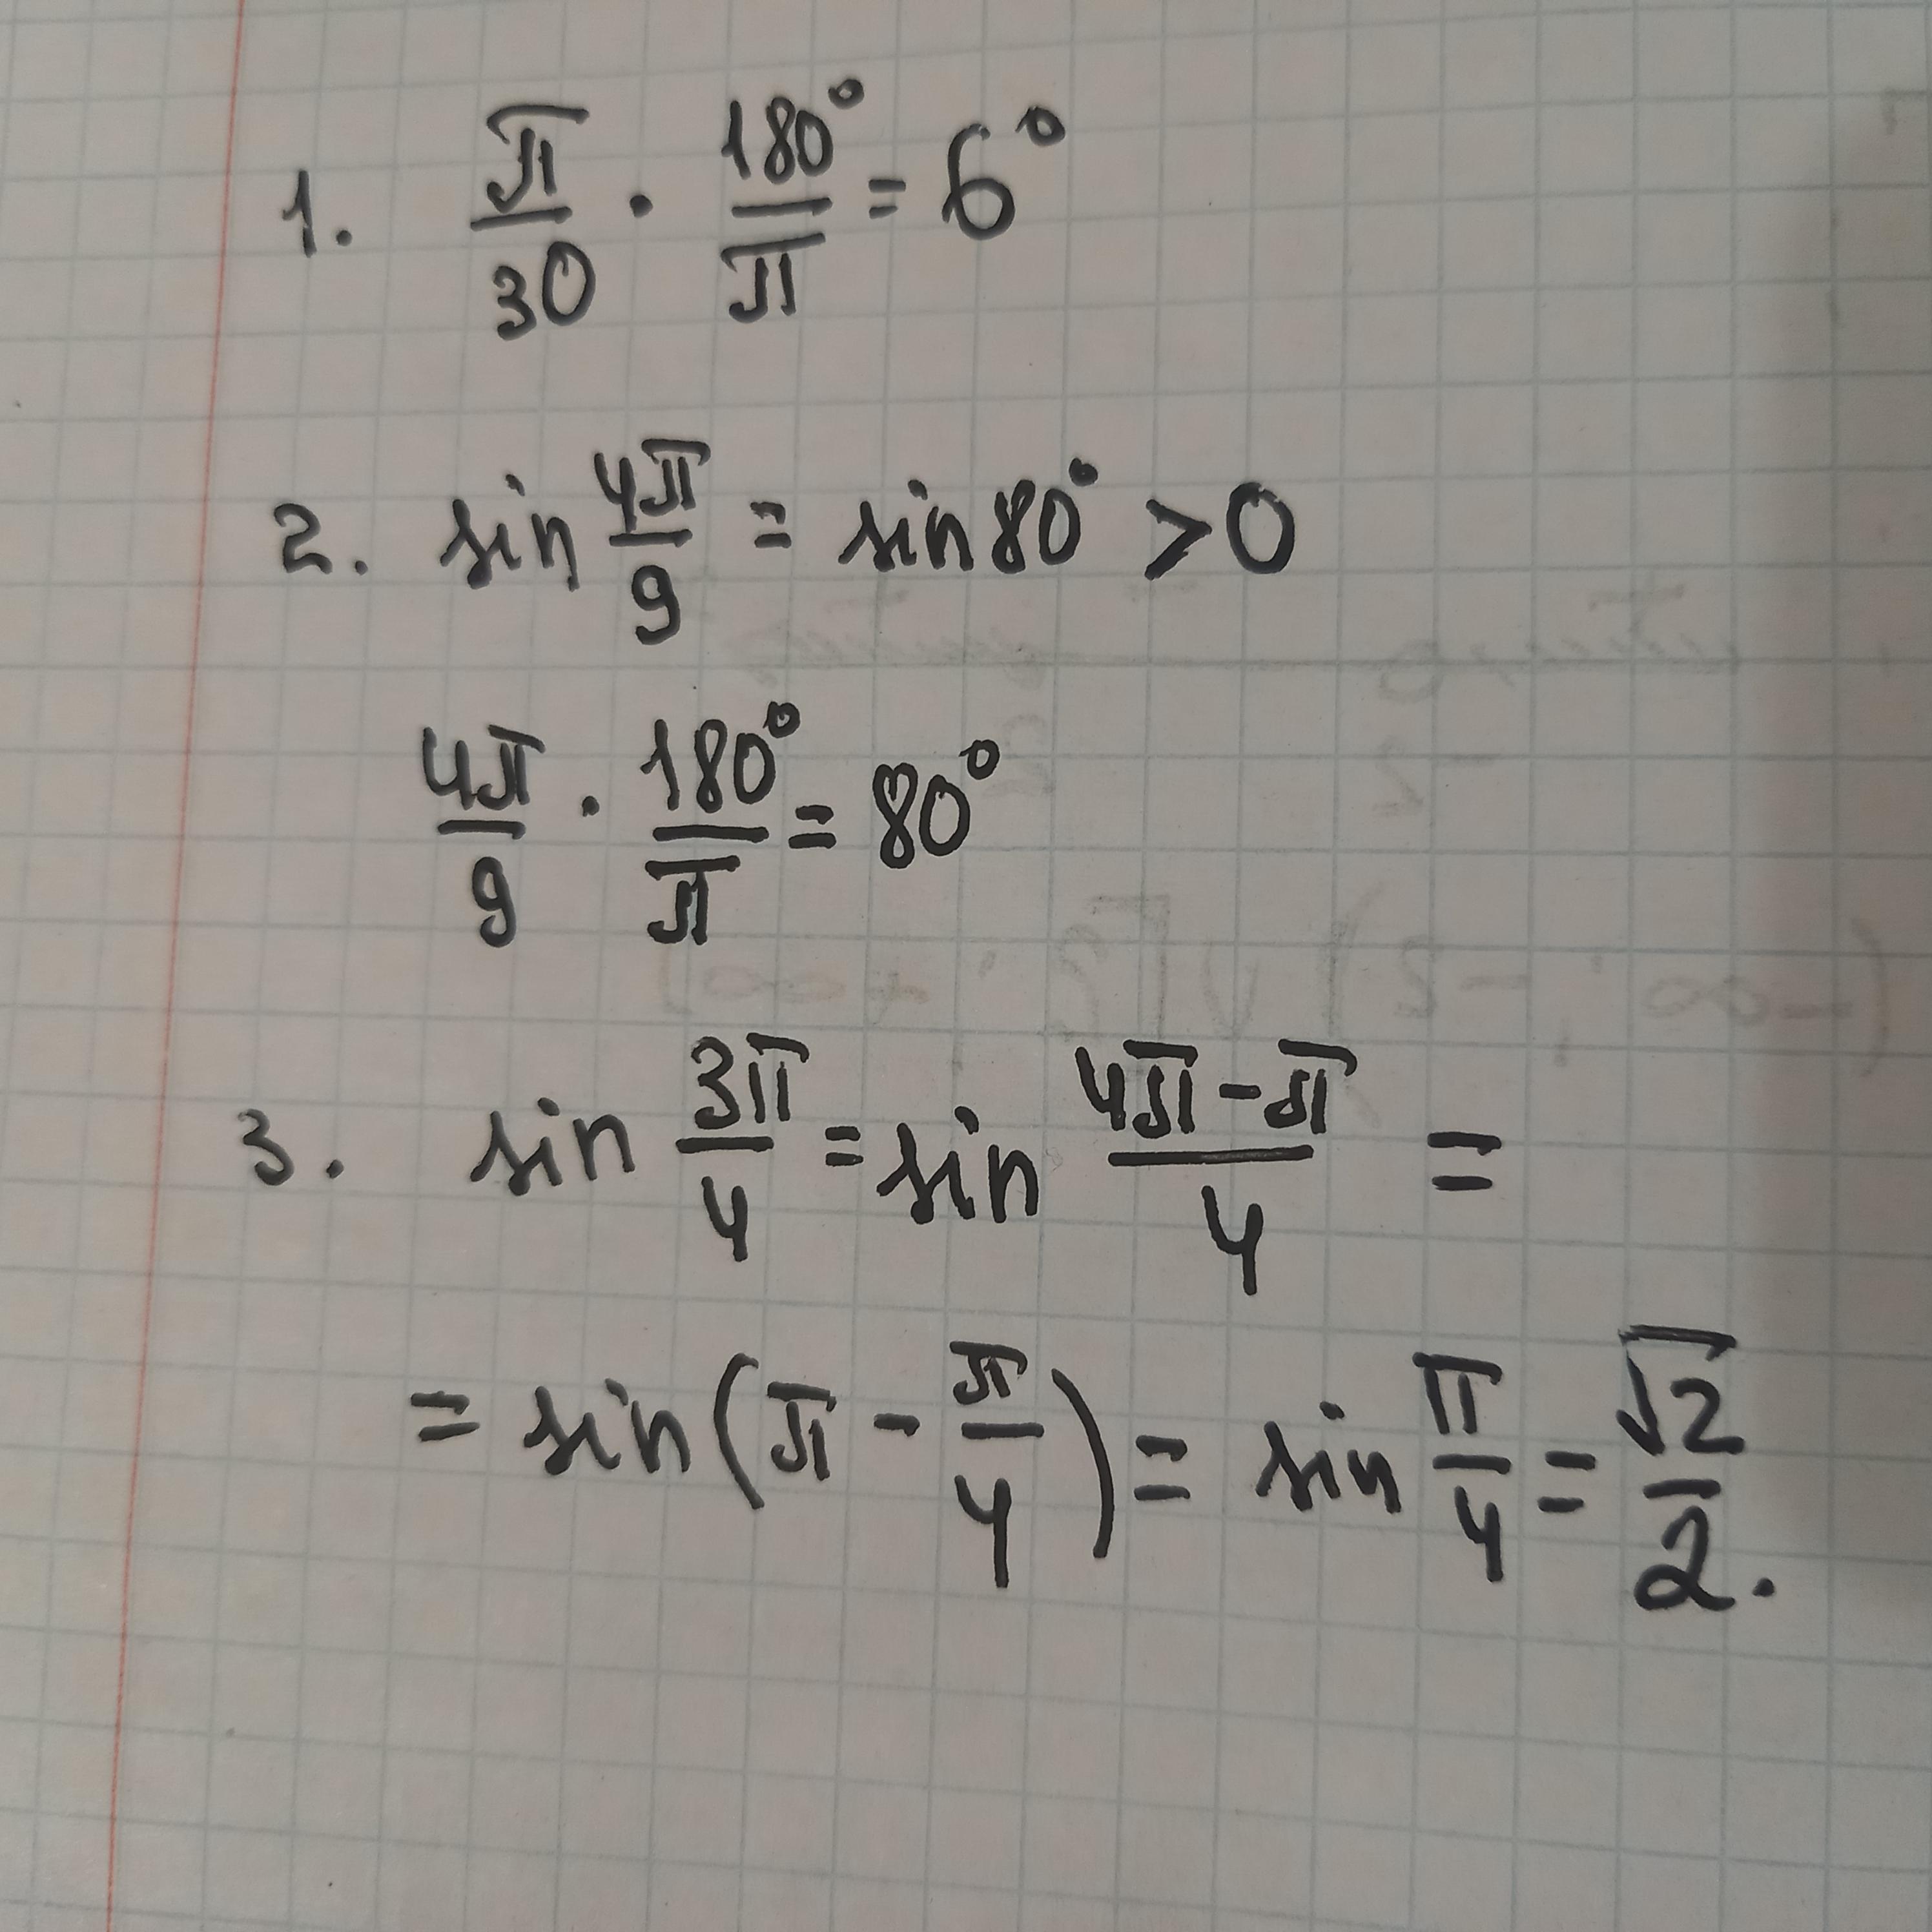 1. π/30 · 180°/π = 6°
2. sin 4π/9 = sin 80° > 0
4π/9 · 180°/π = 80°
3. sin 3π/4 = sin (4π-π)/4 =
= sin(π - π/4) = sin π/4 = √2/2.